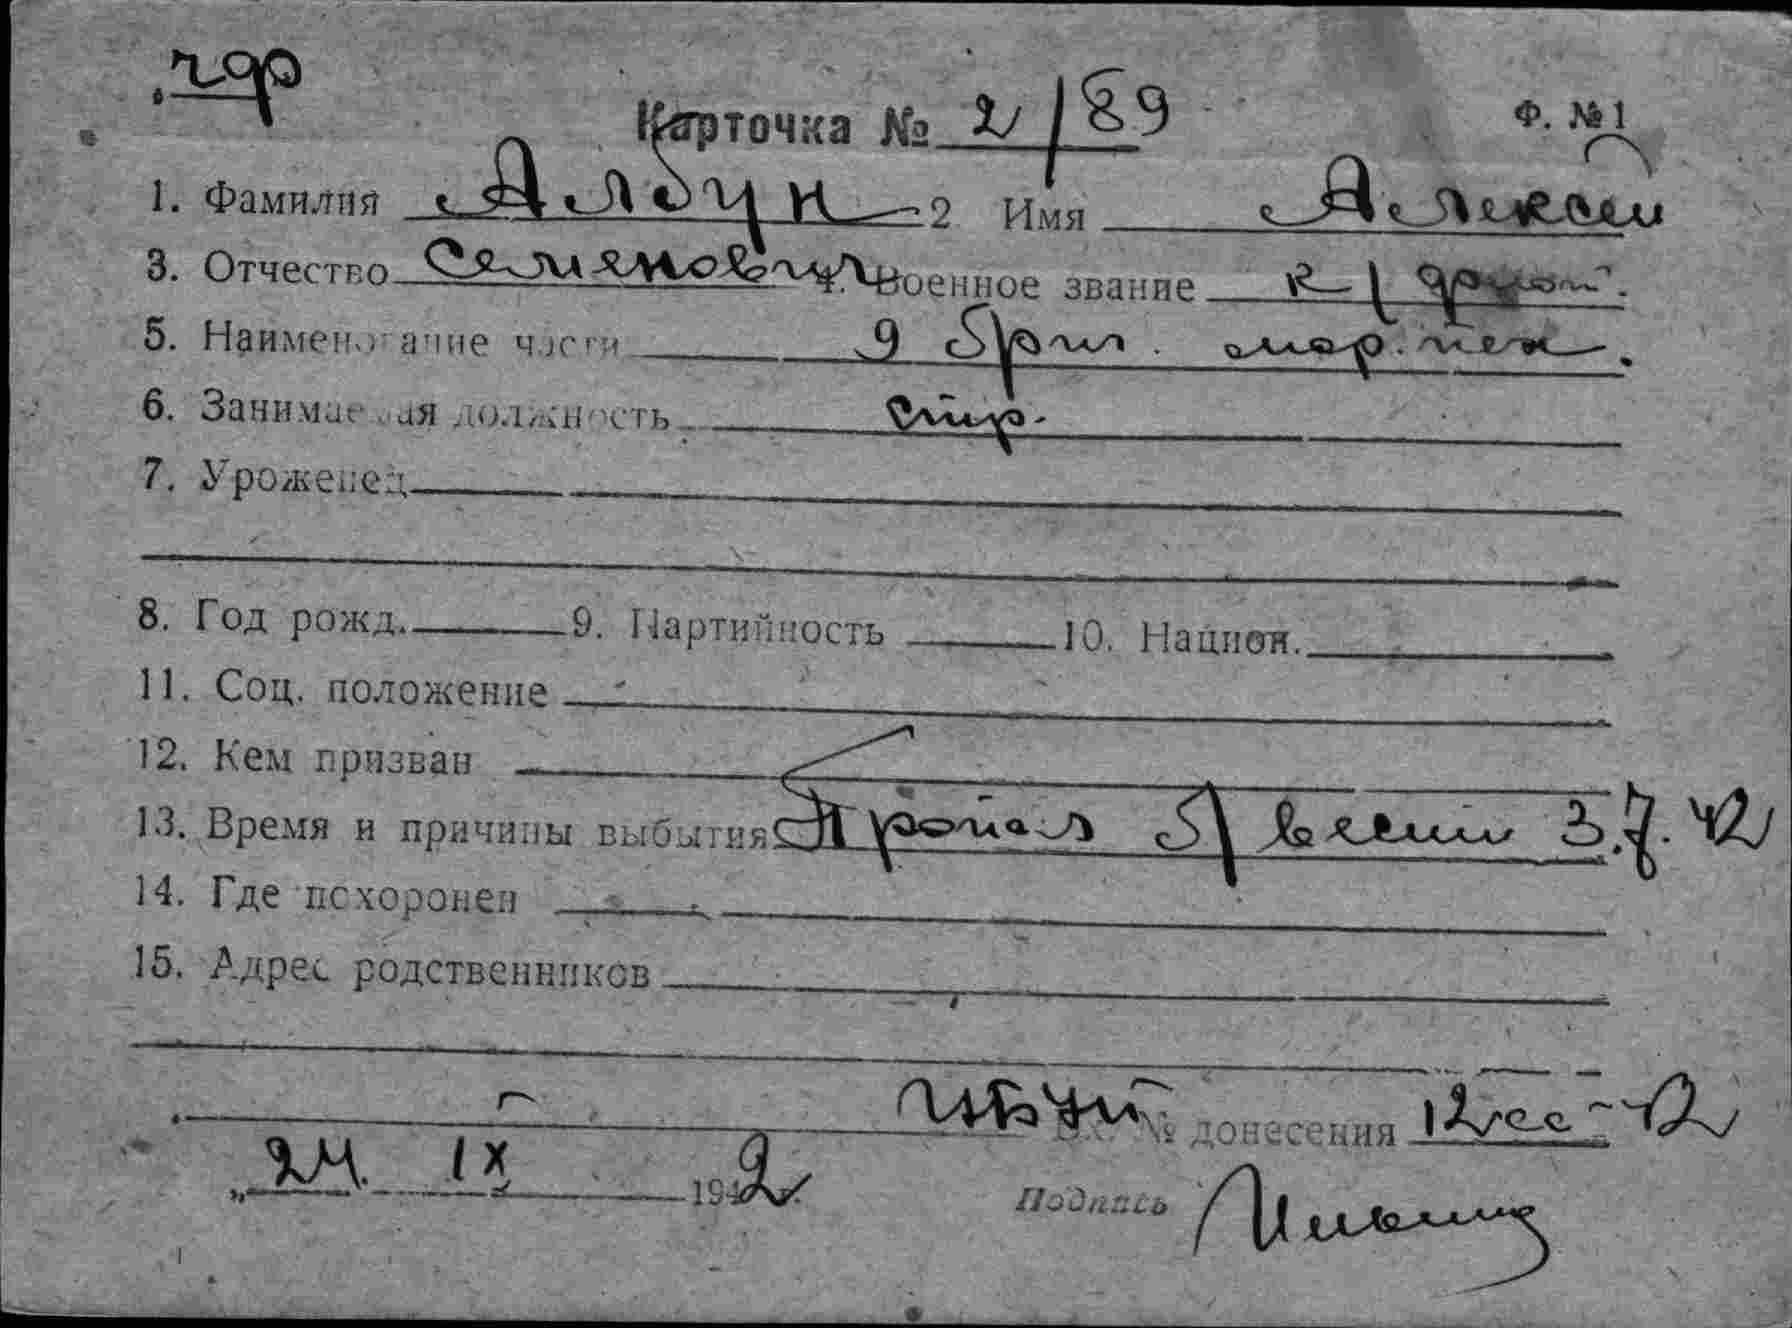 Карточка № 2/89
Ф. №1
1. Фамилия Албун 2 Имя Алексей
3. Отчество Семенович 4. Военное звание к-
5. Наименование части 9 мор. пех.
6. Занимаемая должность стр.
7. Уроженец
8. Год рожд. 9. Партийность 10. Национ.
11. Соц. положение
12. Кем призван
13. Время и причины выбытия Пропал б/вести 3.7.42
14. Где похоронен
15. Адрес родственников
Вх. № донесения 12
„24. IX 1942
Подпись